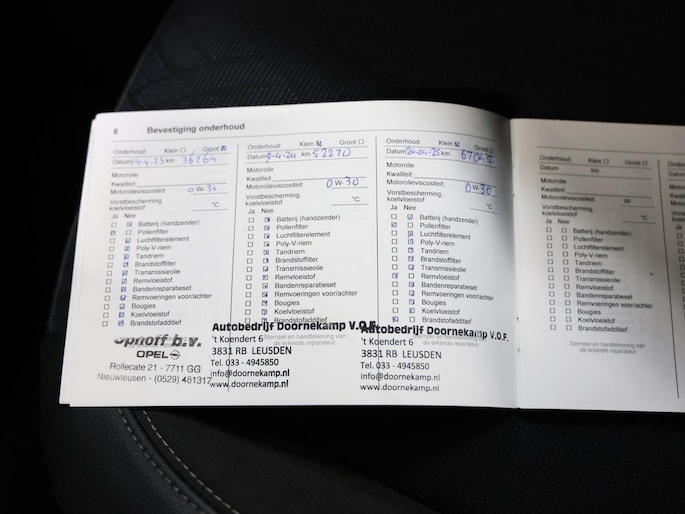 6 Bevestiging onderhoud
Onderhoud: Klein Groot
Datum 14-4-23 km 36264
Motorolie
Kwaliteit:
Motorolieviscositeit: 0 W-30
Vorstbescherming, koelvloeistof °C
Ja Nee
Batterij (handzender)
Pollenfilter
Luchtfilterelement
Poly-V-riem
Tandriem
Brandstoffilter
Transmissieolie
Remvloeistof
Bandenreparatieset
Remvoeringen voor/achter
Bougies
Koelvloeistof
Brandstofadditief
OPEL
Rollecate 21 - 7711 GG
Nieuwleusen - (0529) 481317
Onderhoud: Klein Groot
Datum 9-4-24 km 52270
Motorolie
Kwaliteit:
Motorolieviscositeit: 0 W-30
Vorstbescherming,
koelvloeistof °C
Ja Nee
Batterij (handzender)
Pollenfilter
Luchtfilterelement
Poly-V-riem
Tandriem
Brandstoffilter
Transmissieolie
Remvloeistof
Bandenreparatieset
Remvoeringen voor/achter
Bougies
Koelvloeistof
Brandstofadditief
Autobedrijf Doornekamp V.O.F.
't Koendert 6
3831 RB LEUSDEN
Tel. 033 - 4945850
info@doornekamp.nl
www.doornekamp.nl
Onderhoud: Klein Groot
Datum 24-04-25 km
Motorolie
Kwaliteit:
Motorolieviscositeit: 0 W-30
Vorstbescherming,
koelvloeistof °C
Ja Nee
Batterij (handzender)
Pollenfilter
Luchtfilterelement
Poly-V-riem
Tandriem
Brandstoffilter
Transmissieolie
Remvloeistof
Bandenreparatieset
Remvoeringen voor/achter
Bougies
Koelvloeistof
Brandstofadditief
Autobedrijf Doornekamp V.O.F.
't Koendert 6
3831 RB LEUSDEN
Tel. 033 - 4945850
info@doornekamp.nl
www.doornekamp.nl
Onderhoud: Klein Groot
Datum km
Motorolie
Kwaliteit:
Motorolieviscositeit: W-
Vorstbescherming,
koelvloeistof °C
Ja Nee
Batterij (handzender)
Pollenfilter
Luchtfilterelement
Poly-V-riem
Tandriem
Brandstoffilter
Transmissieolie
Remvloeistof
Bandenreparatieset
Remvoeringen voor/achter
Bougies
Koelvloeistof
Brandstofadditief
Stempel en handtekening van
de erkende reparateur